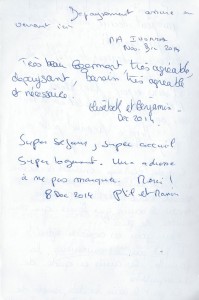 Dépaysement assuré en
venant ici
Nov. Dec 2014
Très beau logement très agréable,
dépaysant, besoin très agréable
et nécessaire.
Elisabeth et Benjamin
Dec 2014
Super séjour, super accueil
Super logement. Une adresse
à ne pas manquer. Merci !
8 Dec 2014 Phil et Marie